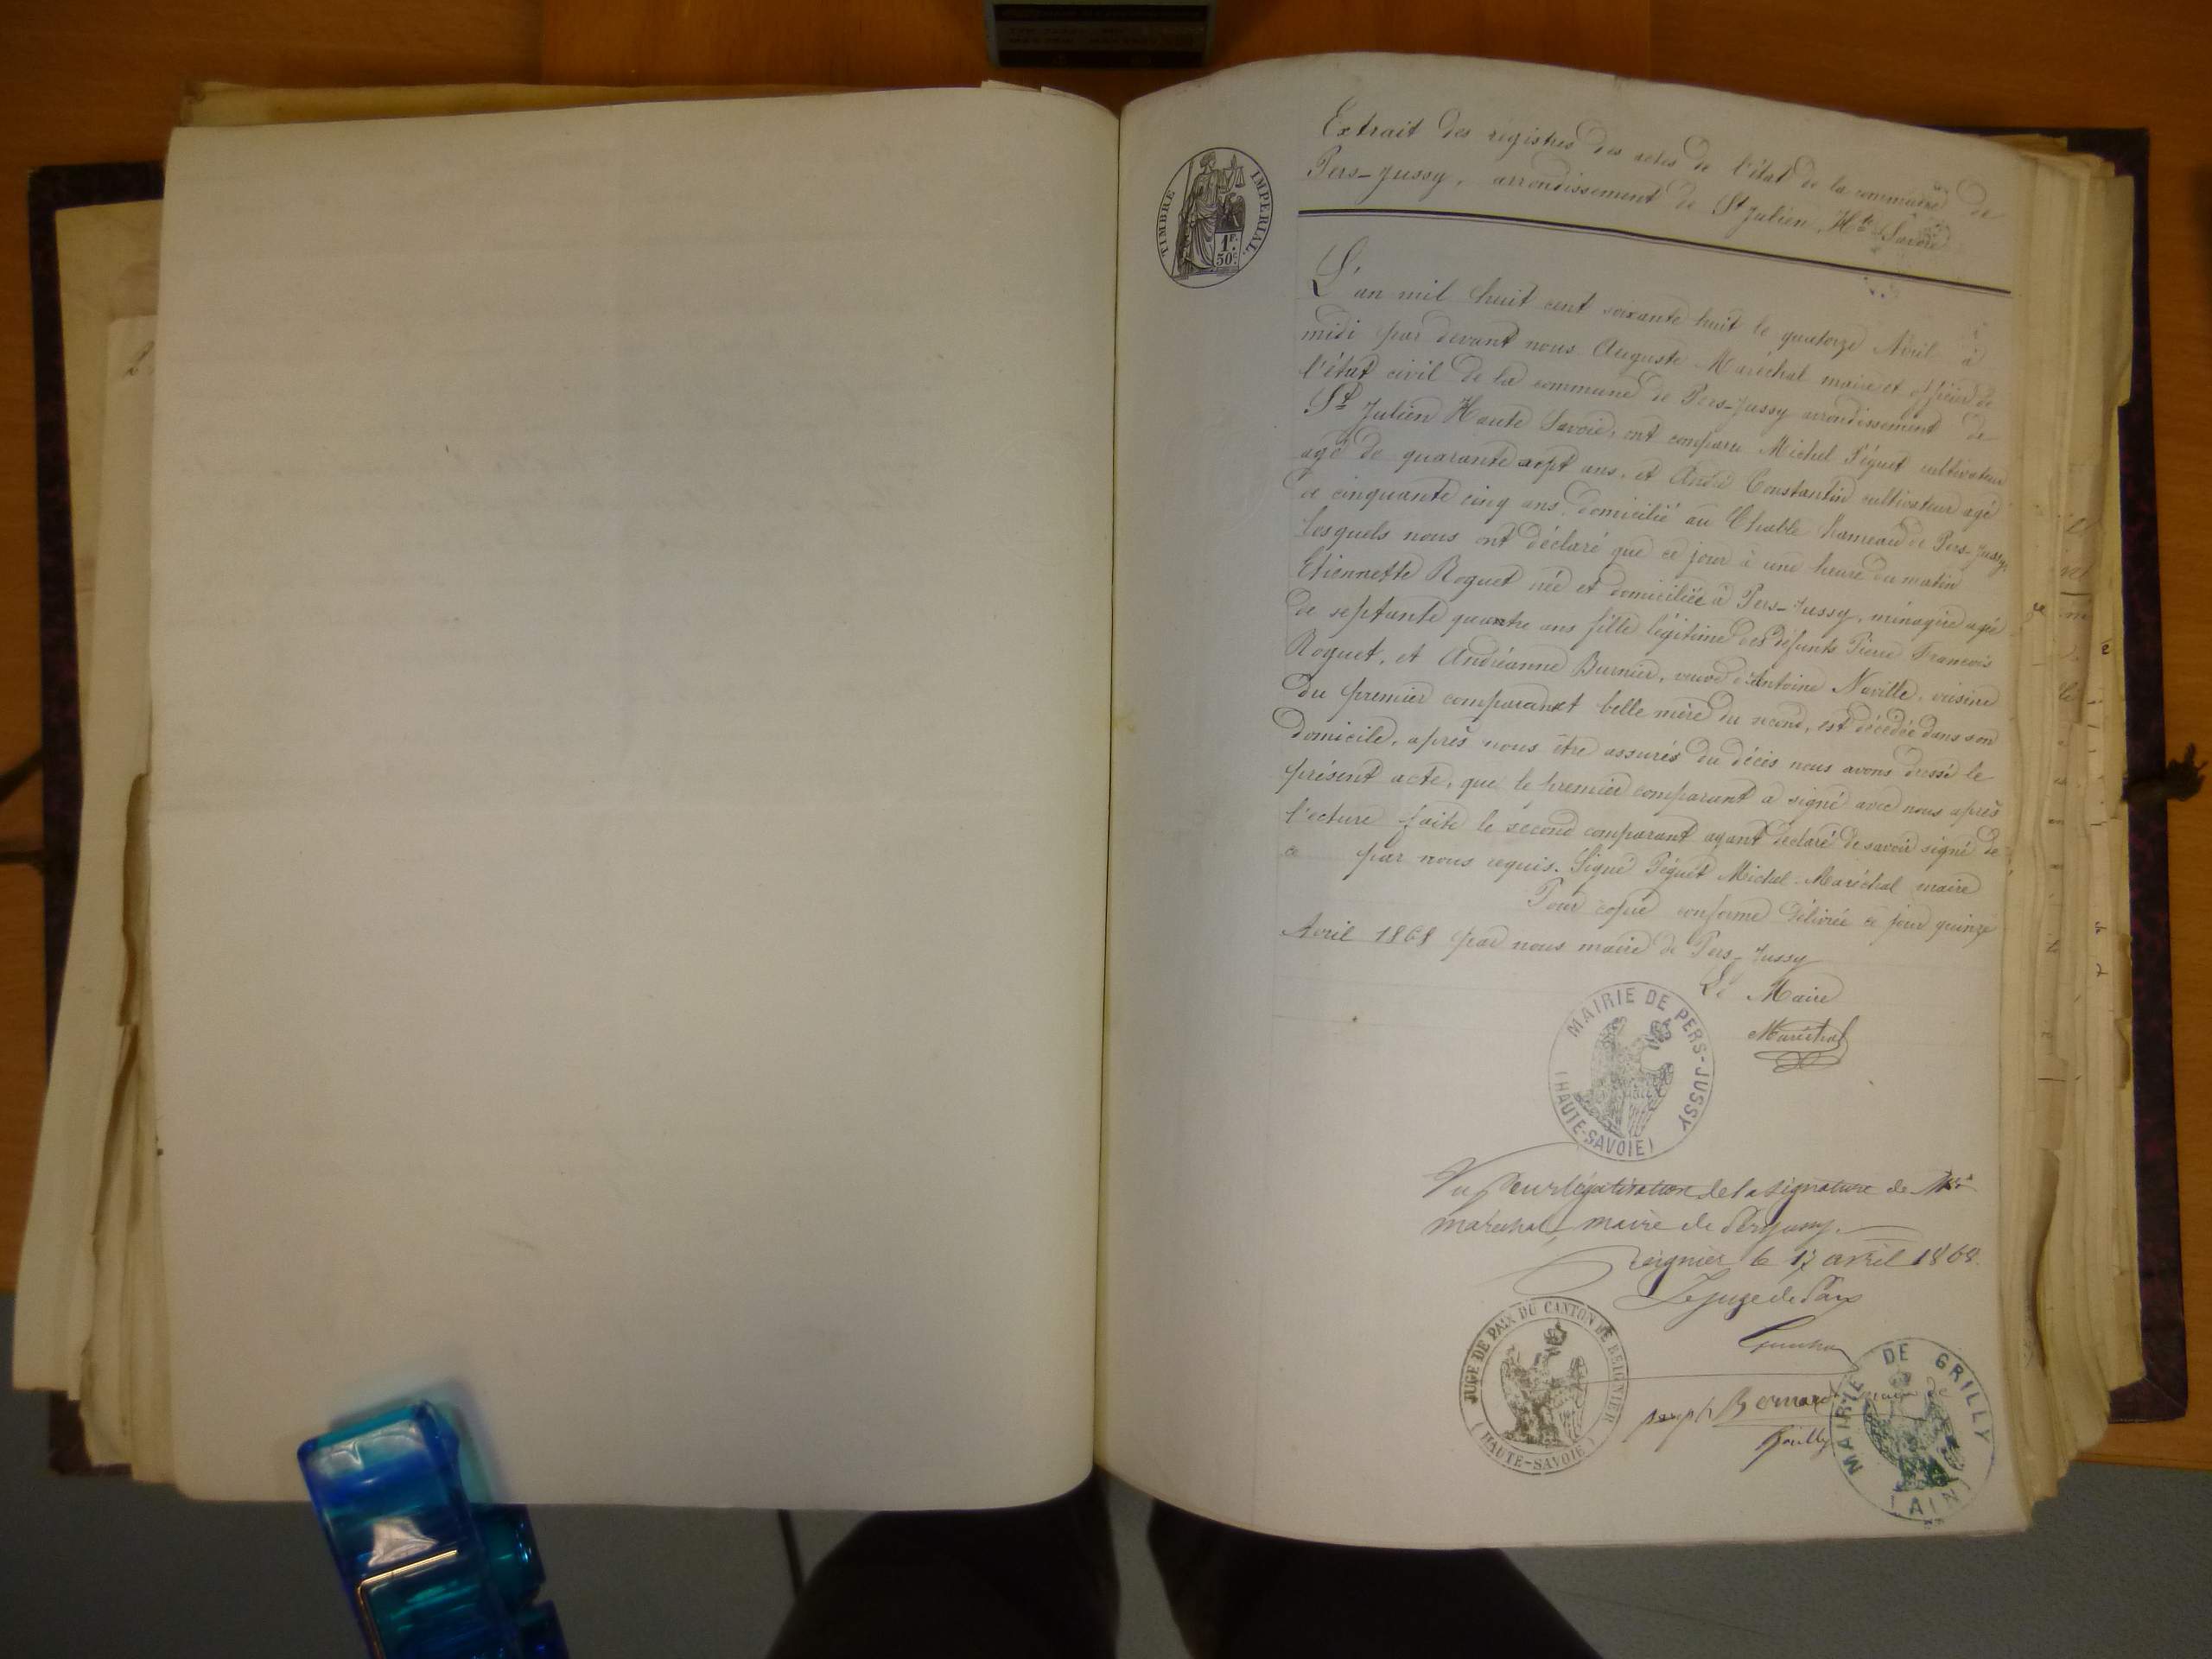 TIMBRE IMPERIAL
1F.
50c.
Extrait des registres des actes de l'état de la commune de
Pers-Jussy, arrondissement de St Julien, Hte Savoie
L'an mil huit cent soixante huit le quatorze Avril à
midi par devant nous Auguste Maréchal maire et officier de
l'état civil de la commune de Pers-Jussy arrondissement de
St Julien Haute Savoie, ont comparu Michel Péguet cultivateur
agé de quarante sept ans, et André Constantin cultivateur agé
de cinquante cinq ans, domicilié au Chable hameau de Pers-Jussy,
lesquels nous ont déclaré que ce jour à une heure du matin
Etiennette Roguet née et domiciliée à Pers-Jussy, ménagère agée
de septante quatre ans fille légitime des défunts Pierre François
Roguet, et Andréanne Burnier, veuve d'Antoine Naville, voisine
du premier comparant belle mère du second, est décédée dans son
domicile, après nous être assurés du décès nous avons dressé le
présent acte, que le premier comparant a signé avec nous après
lecture faite le second comparant ayant déclaré de savoir signé de
ce par nous requis. Signé Péguet Michel Maréchal maire
Pour copie conforme délivrée ce jour quinze
Avril 1868 par nous maire de Pers-Jussy
Le Maire
Maréchal
MAIRIE DE PERS-JUSSY
(HAUTE-SAVOIE)
Vu pour légalisation de la signature de Mr
maréchal, maire de Persjussy.
Reignier le 17 avril 1868.
Le juge de Paix
JUGE DE PAIX DU CANTON DE REIGNIER
(HAUTE-SAVOIE)
joseph Bernard maire de
Grilly
MAIRIE DE GRILLY
(AIN)